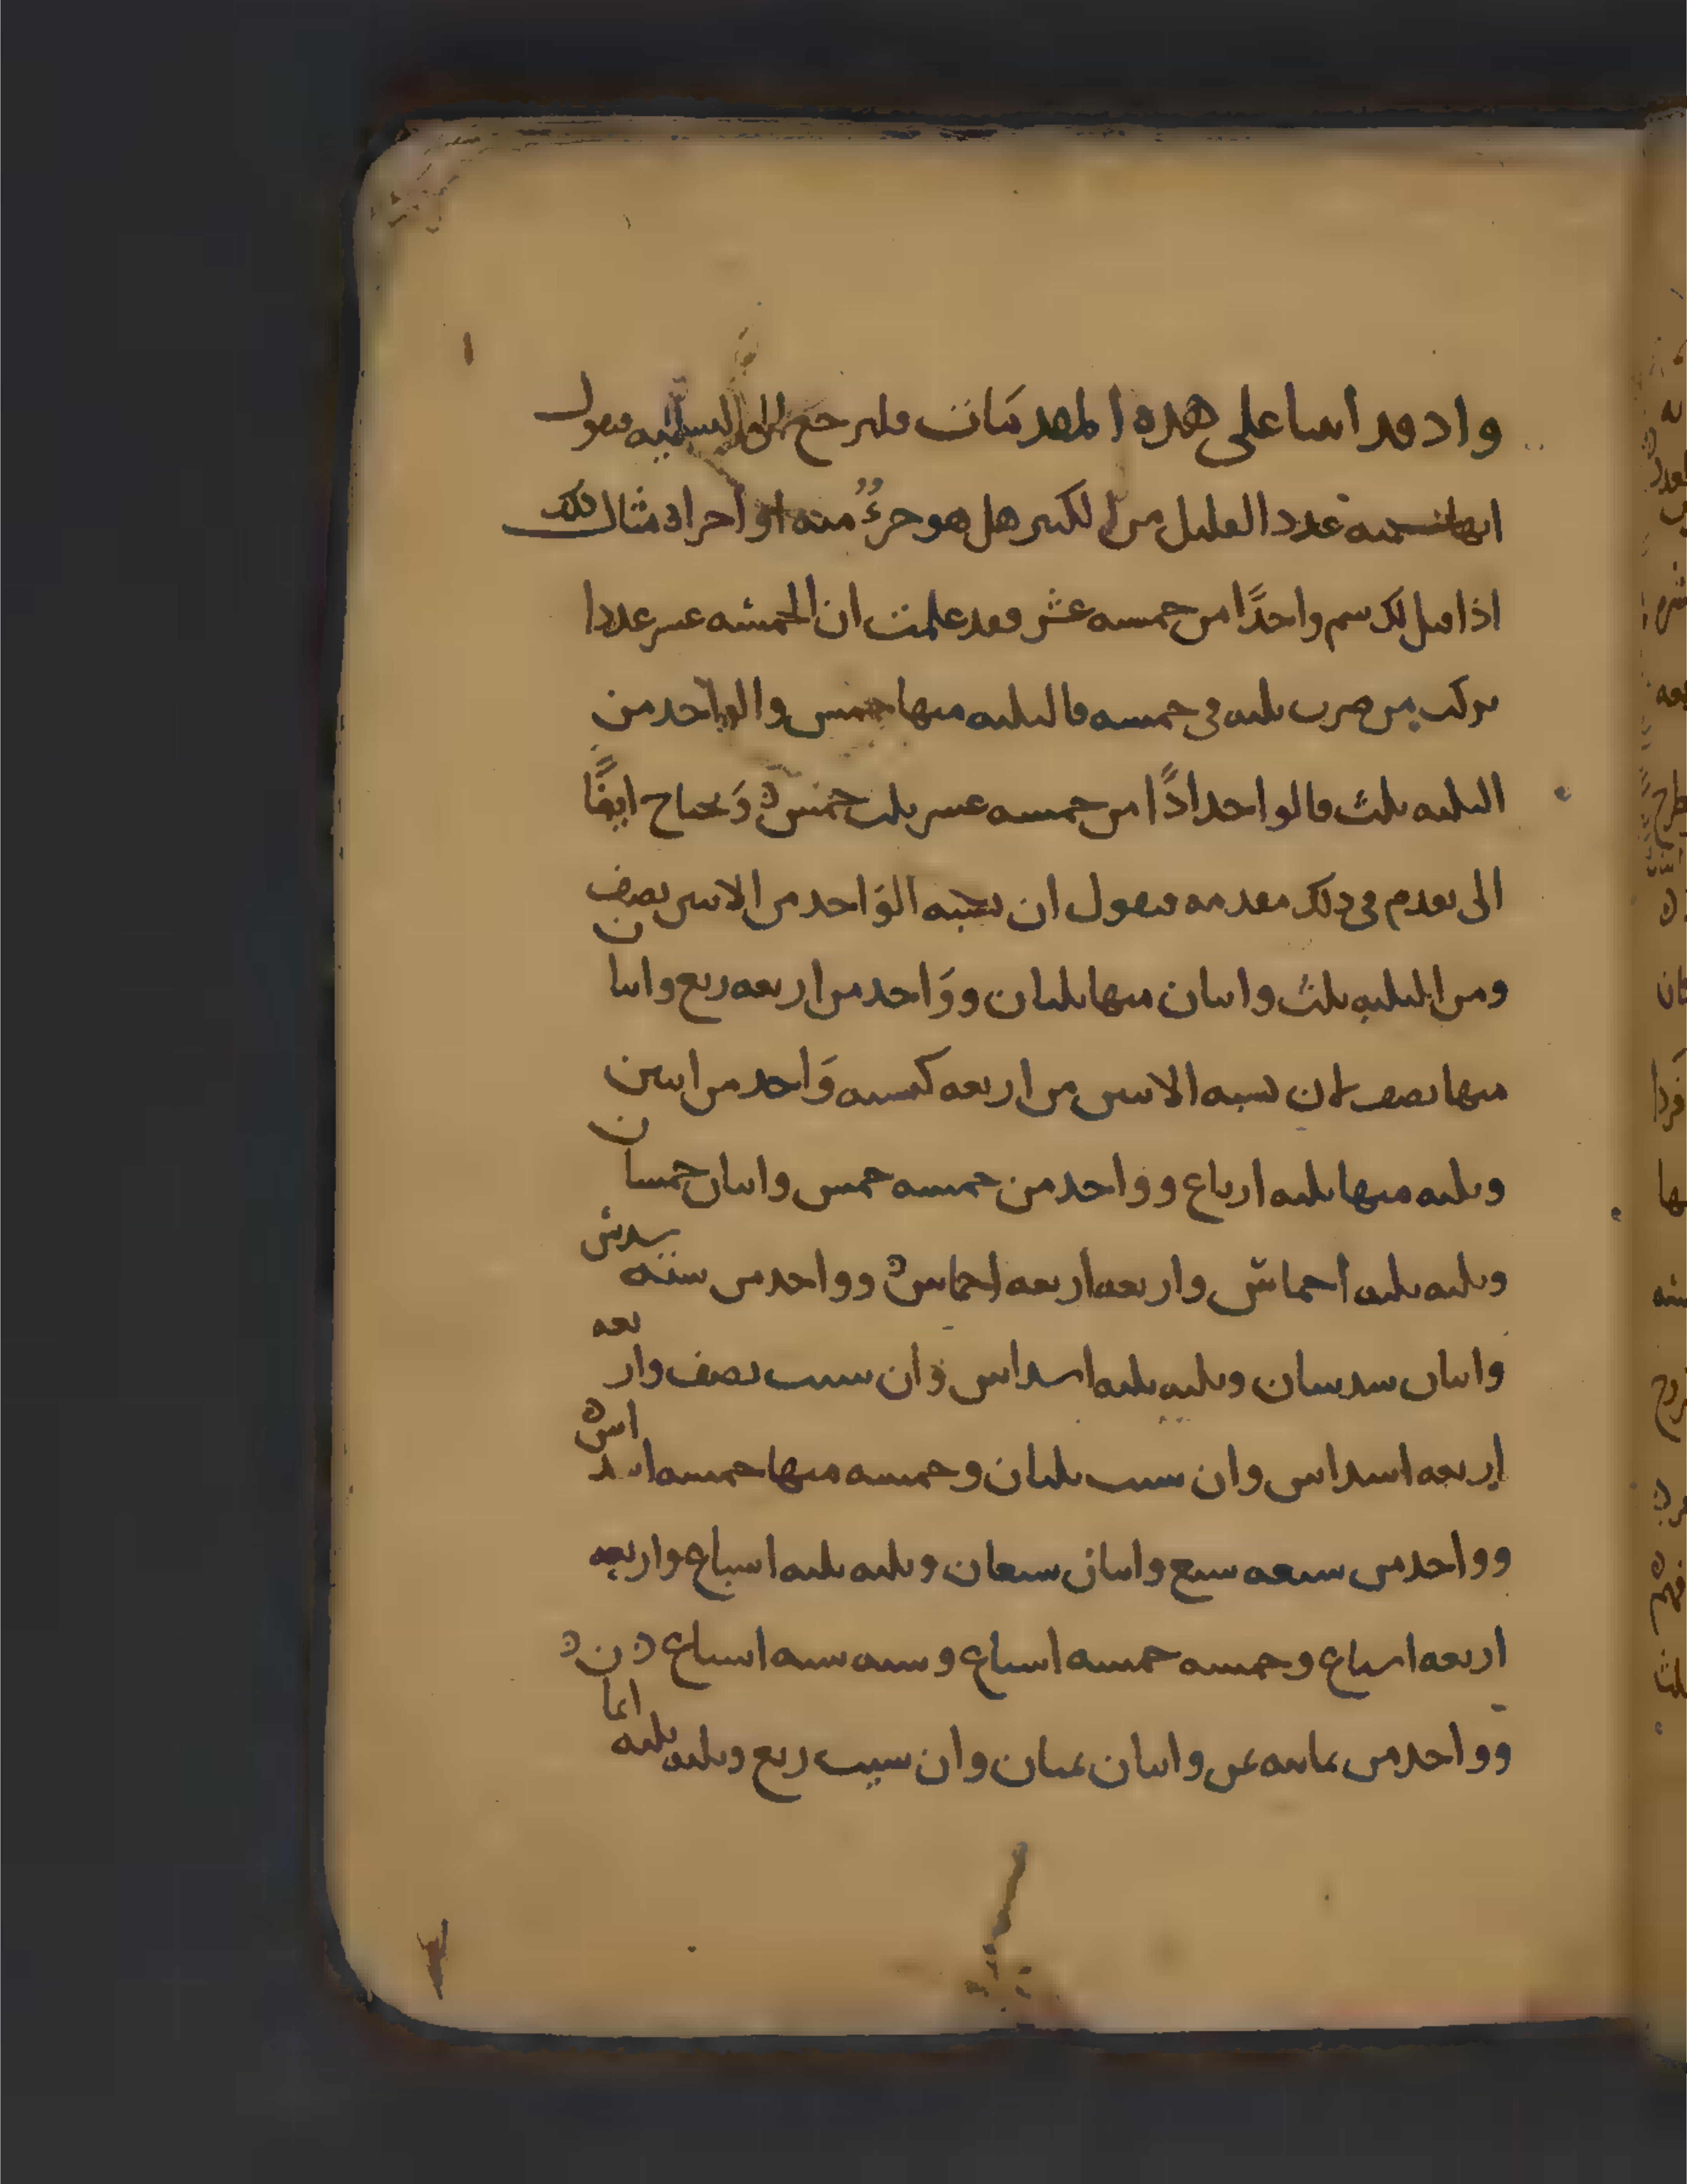 واذ قد اتينا على هذه المقدمات فلنرجع الى التسمية فنقول
انها نسبة عدد القليل من الكثير هل هو جزءٌ منه او اجزاء مثال ذلك
اذا قيل لك سم واحدًا من خمسه عشر فقد علمت ان الخمسه عشر عددا
تركب من ضرب ثلثه في خمسه فالثلثه منها خمس والواحد من
الثلثه ثلث فالواحد اذًا من خمسه عشر ثلث خمس ويحتاج ايضًا
الى تقدم في ذلك مقدمه فنقول ان نسبه الواحد من الاثنين نصف
ومن الثلثه ثلث واثنان منها ثلثان وواحد من اربعه ربع واثنان
منها نصف لان نسبه الاثنين من اربعه كنسبه واحد من اثنين
وثلثه منها ثلثه ارباع وواحد من خمسه خمس واثنان خمسان
وثلثه ثلثه اخماس واربعه اربعه اخماس وواحد من سته سدس
واثنان سدسان وثلثه ثلثه اسداس وان شيت نصف واربعه
اربعه اسداس وان شيت ثلثان وخمسه منها خمسه اسداس
وواحد من سبعه سبع واثنان سبعان وثلثه ثلثه اسباع واربعه
اربعه اسباع وخمسه خمسه اسباع وسته سته اسباع
وواحد من ثمانيه ثمن واثنان ثمنان وان شيت ربع وثلثه ثلثه اثما